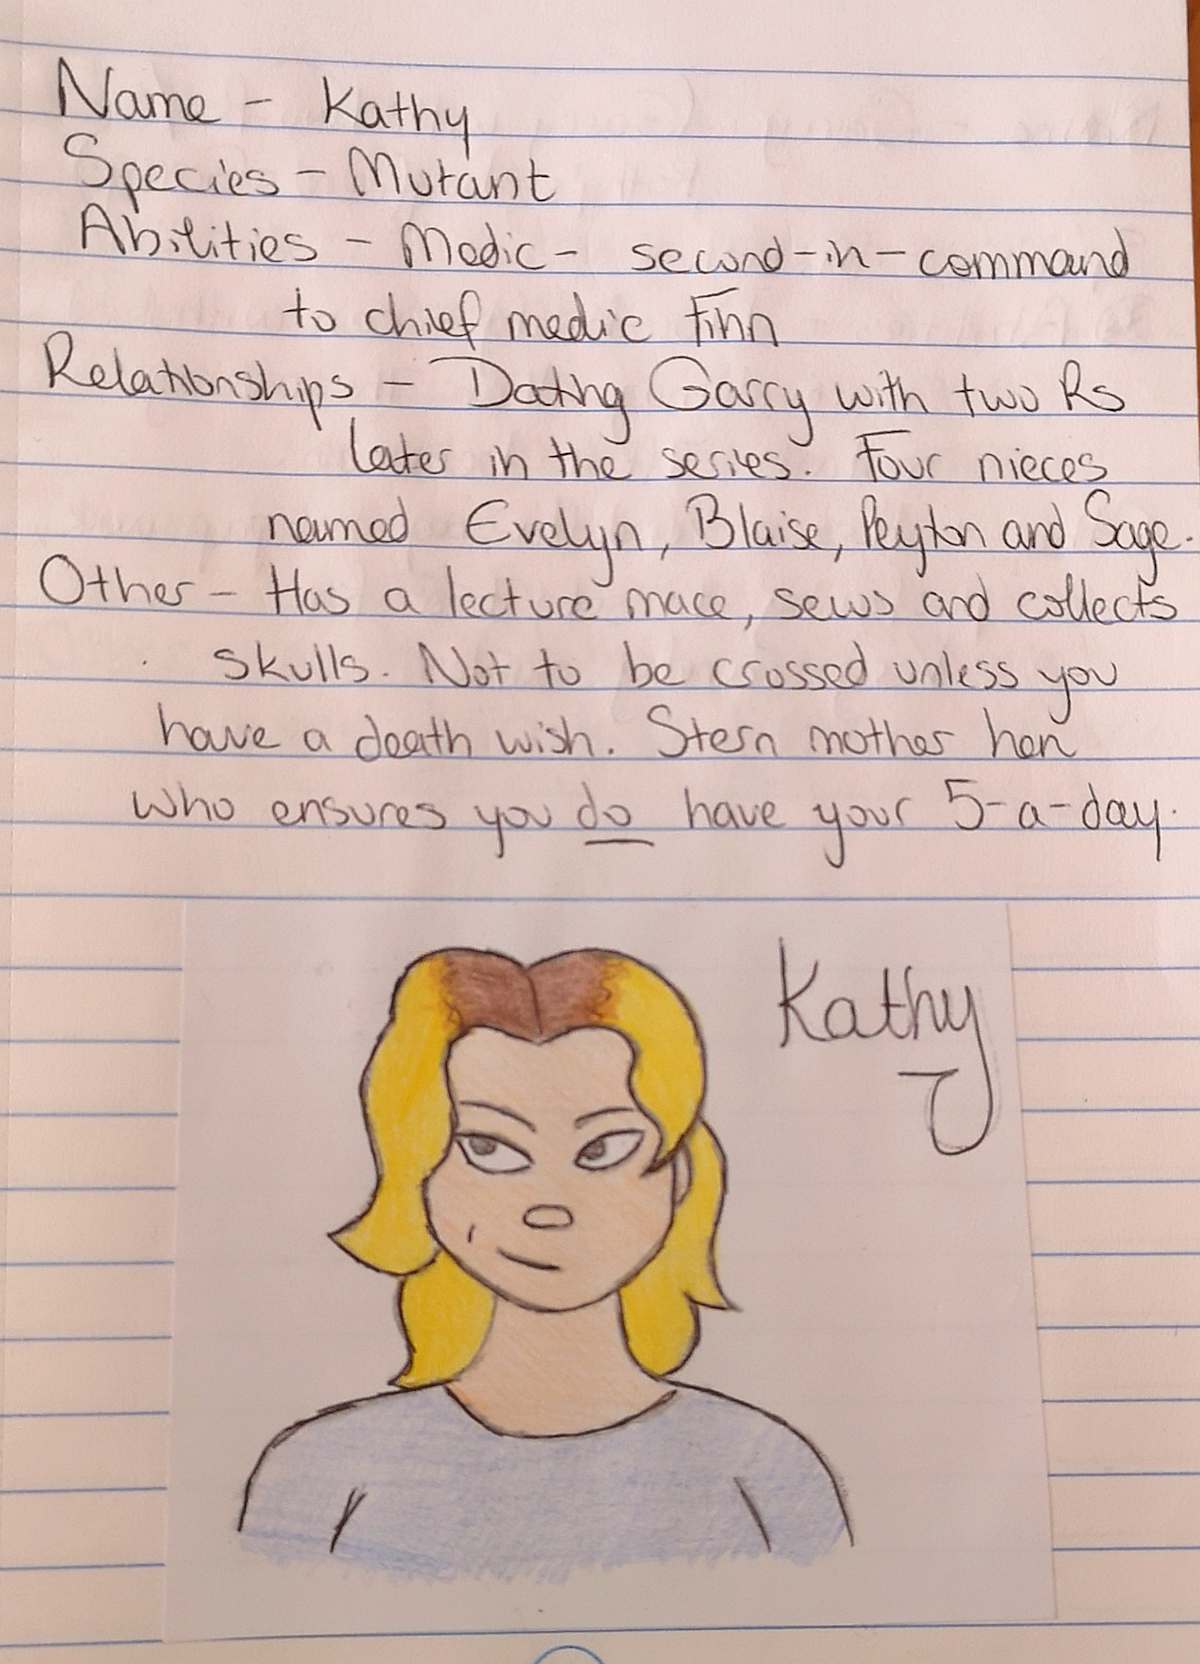 Name - Kathy
Species - Mutant
Abilities - Medic - second-in-command
to chief medic Finn
Relationships - Dating Garry with two Rs
later in the series. Four nieces
named Evelyn, Blaise, Peyton and Sage.
Other - Has a lecture mace, sews and collects
skulls. Not to be crossed unless you
have a death wish. Stern mother hen
who ensures you do have your 5-a-day.
Kathy